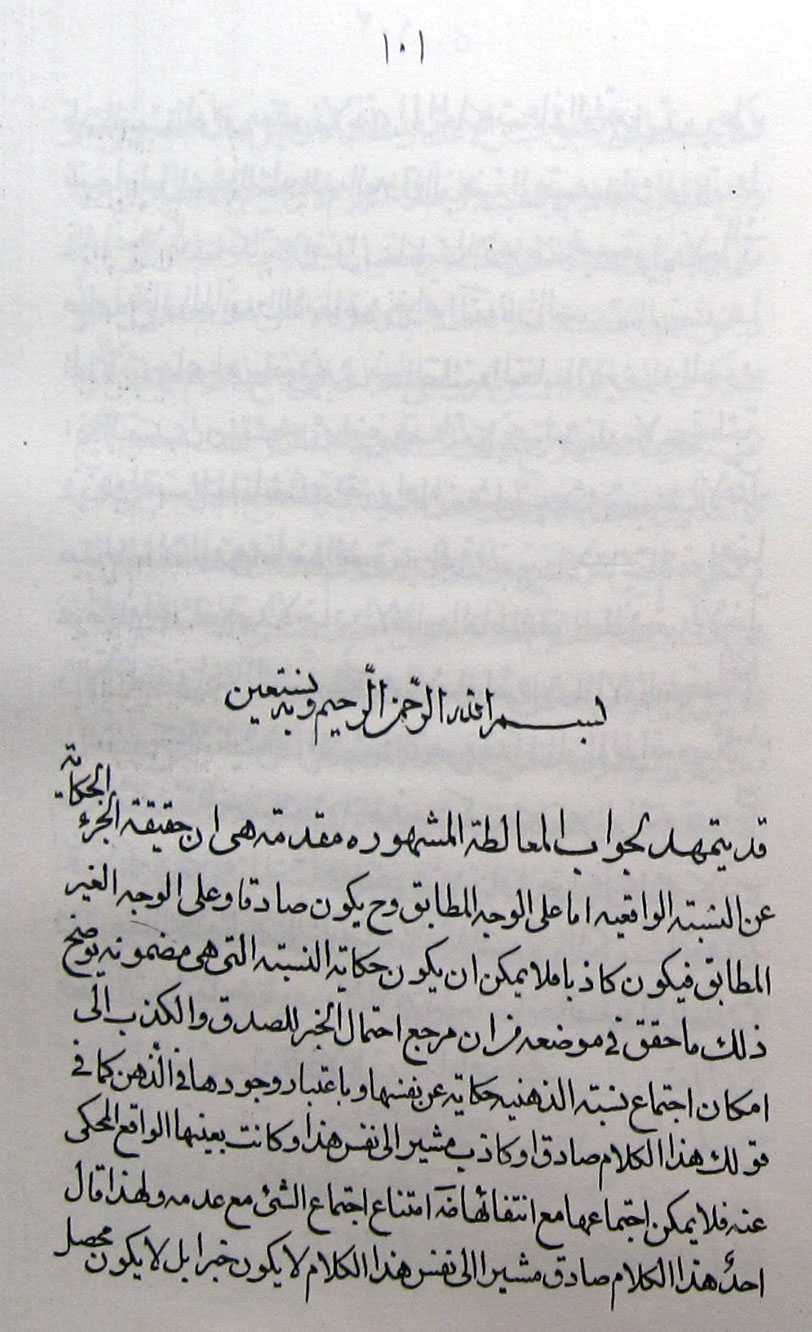 ١٠١
بسم الله الرّحمن الرّحيم وبه نستعين
قد يتمهد لجواب المغالطة المشهوره مقدمة هى ان حقيقة الخبر الحكاية
عن النسبته الواقعيه اما على الوجه المطابق وح يكون صادقا وعلى الوجه الغير
المطابق فيكون كاذبا فلا يمكن ان يكون حكاية النسبته التى هى مضمونه يوضح
ذلك ما حقق فى موضعه من ان مرجع احتمال الخبر للصدق والكذب الى
امكان اجتماع نسبته الذهنيه حكاية عن نفسها وباعتبار وجودها فى الذهن كما فى
قولك هذا الكلام صادق او كاذب مشيرا الى نفس هذا وكانت بعينها الواقع المحكى
عنه فلا يمكن اجتماعها مع انتفائها ضرة امتناع اجتماع الشئ مع عدمه ولهذا قال
احد هذا الكلام صادق مشيرا الى نفس هذا الكلام لا يكون خبرا بل لا يكون محصل